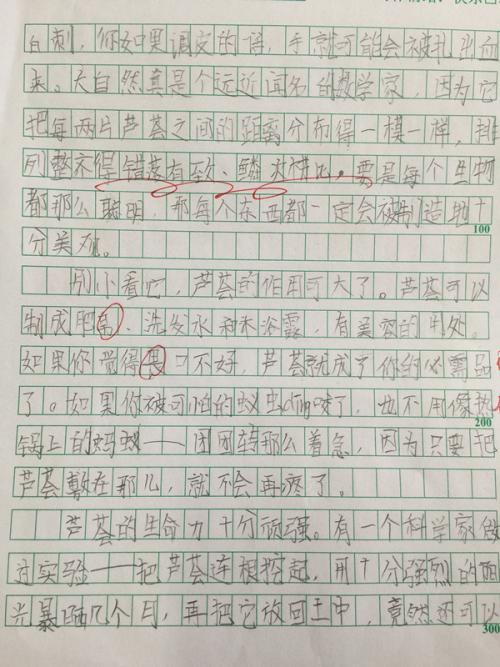 白刺，你如果调皮的话，手就可能会被扎出血
来。大自然真是个远近闻名的数学家，因为它
把每两片芦荟之间的距离分布得一模一样，排
列整齐得错落有致、鳞次栉比。要是每个生物
都那么聪明，那每个东西都一定会被制造地十
100
分美观。
别小看它，芦荟的作用可大了。芦荟可以
制成肥皂、洗发水和沐浴露，有美容的用处。
如果你觉得胃口不好，芦荟就成了你的必需品
了。如果你被可怕的蚁虫ding咬了，也不用像热
200
锅上的蚂蚁——团团转那么着急，因为只要把
芦荟敷在那儿，就不会再疼了。
芦荟的生命力十分顽强。有一个科学家做
过实验——把芦荟连根挖起，用十分强烈的阳
光暴晒几个月，再把它放回土中，竟然还可以
300